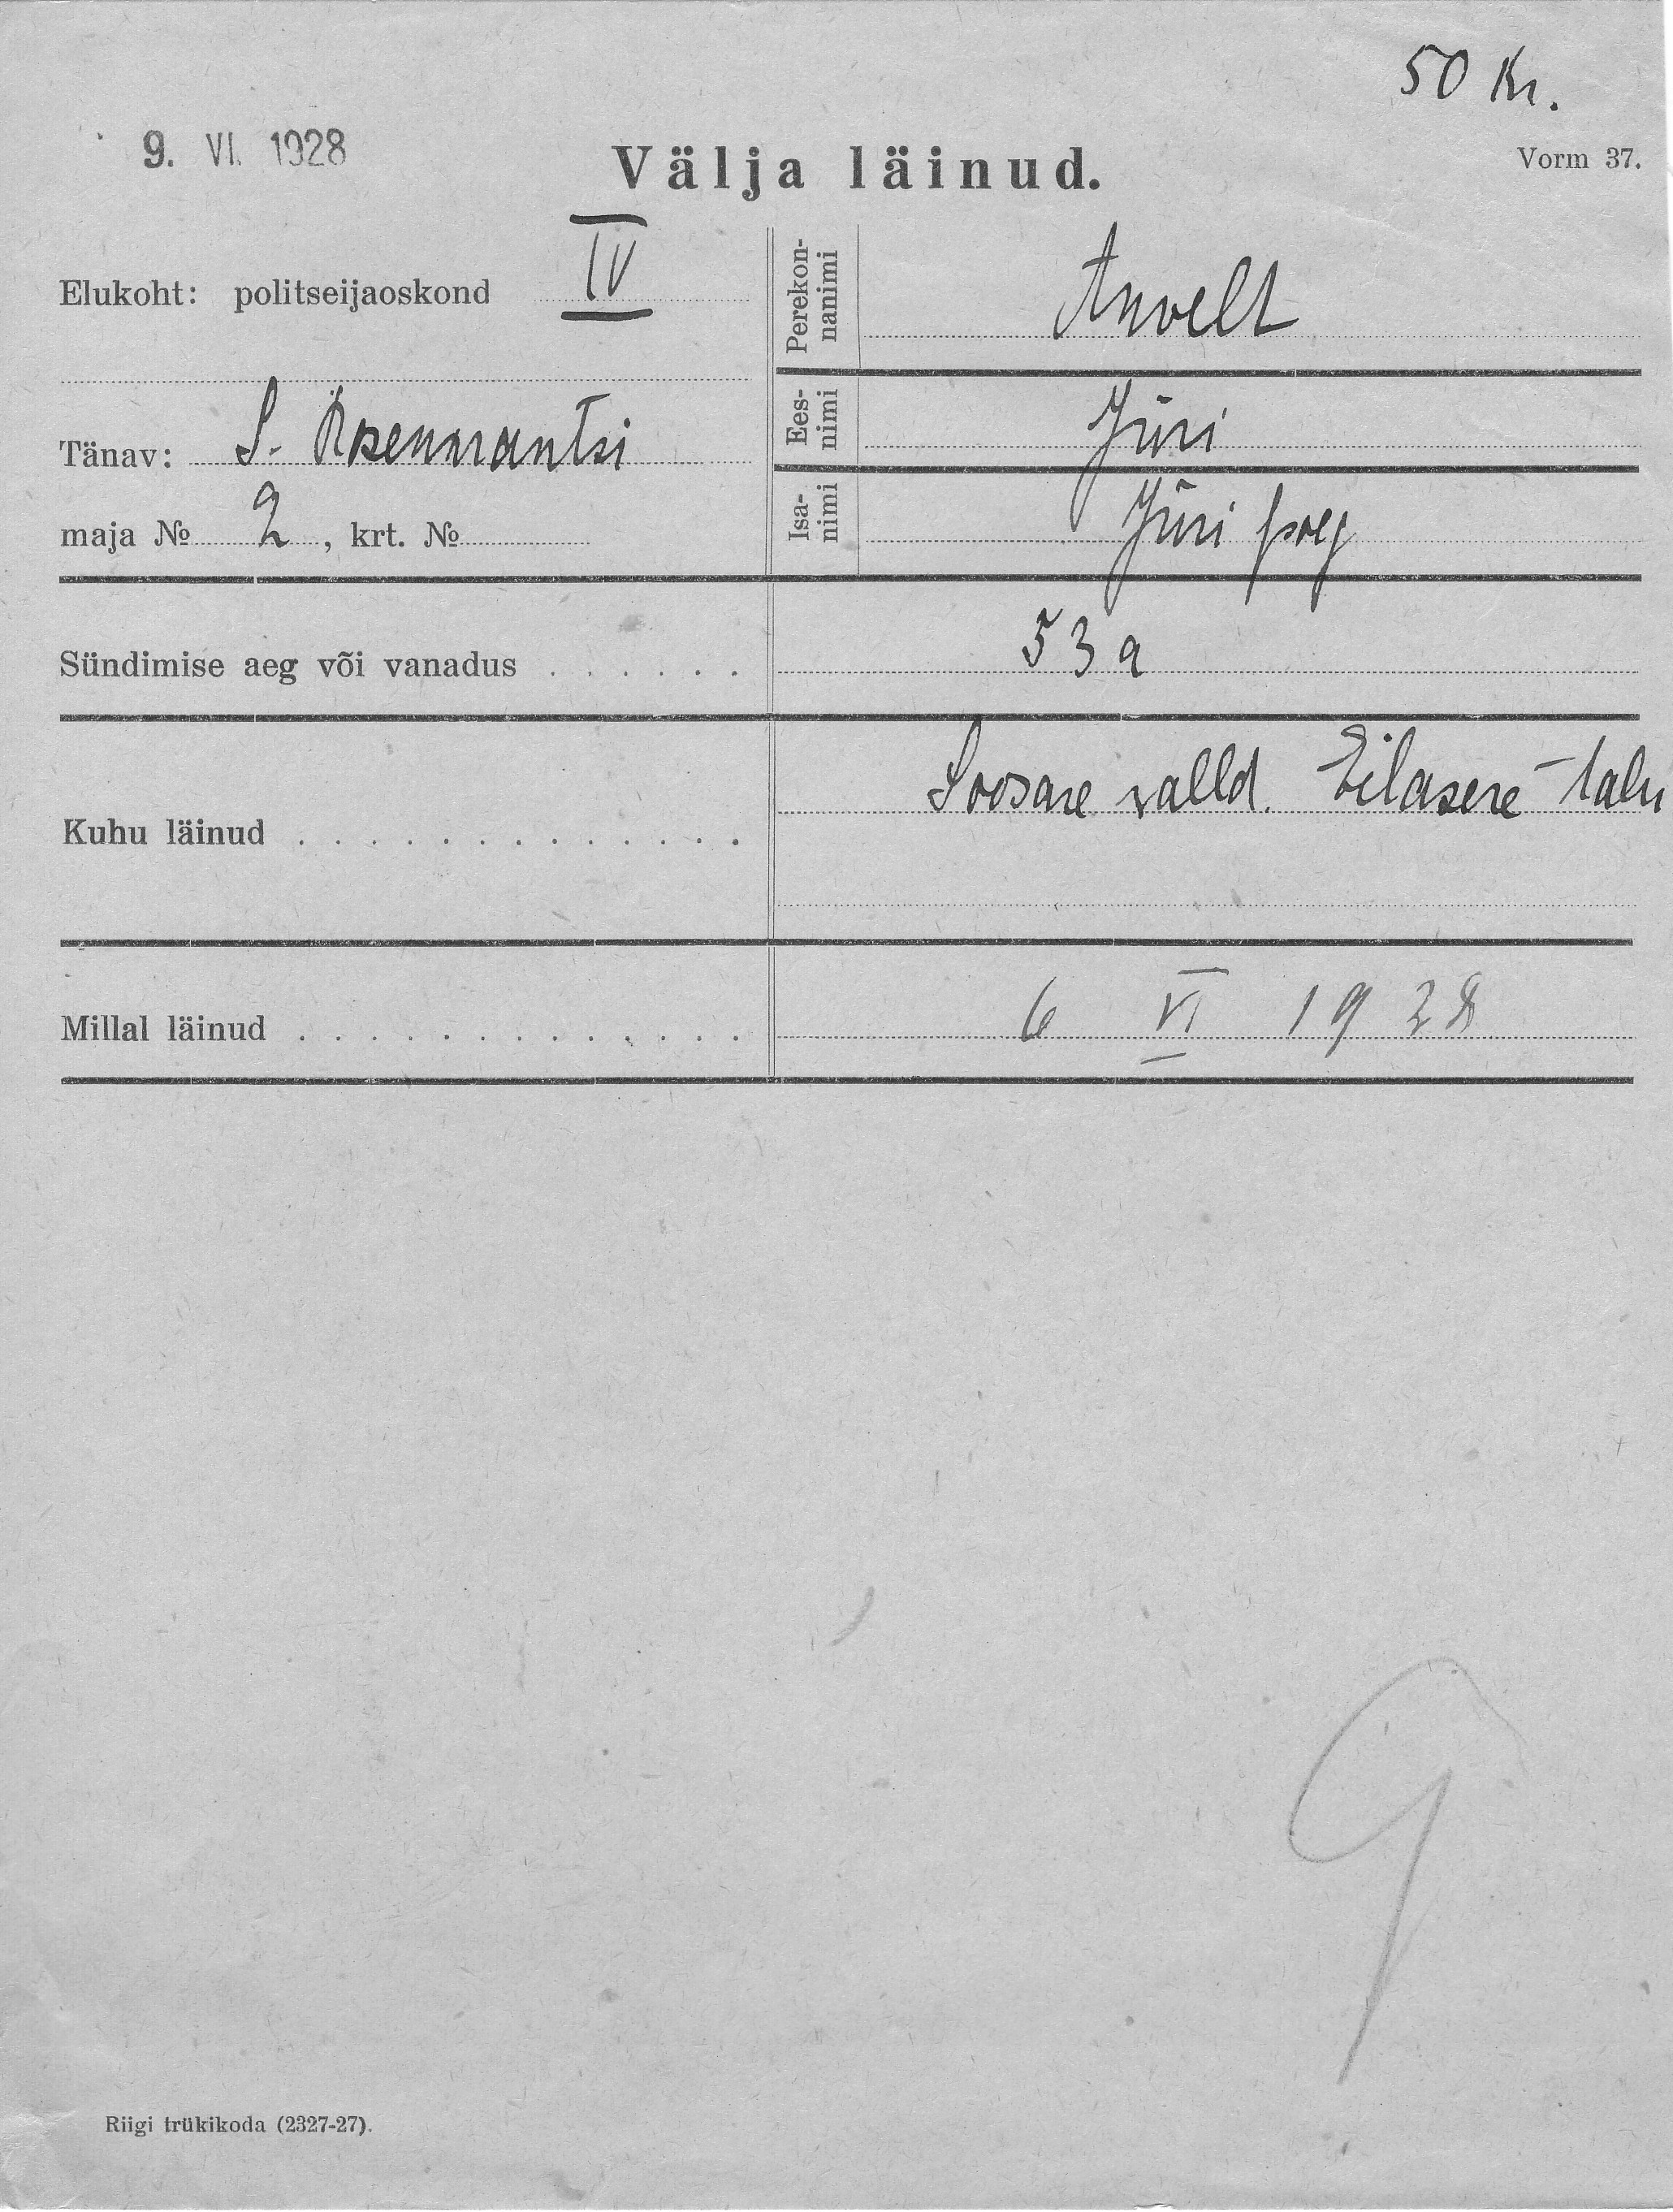 50 Kr.
9. VI. 1928
Välja läinud.
Vorm 37.
Elukoht: politseijaoskond IV
Tänav: S. Rosenkrantsi
maja № 2, krt. №
Perekon-
nanimi
Anvelt
Ees-
nimi
Jüri
Isa-
nimi
Jüri poeg
Sündimise aeg või vanadus . . . . . . 53 a
Kuhu läinud . . . . . . . . . . . . . Soosare valld. Eilasere-talu
Millal läinud . . . . . . . . . . . . . 6 VI 1928
9
Riigi trükikoda (2327-27).